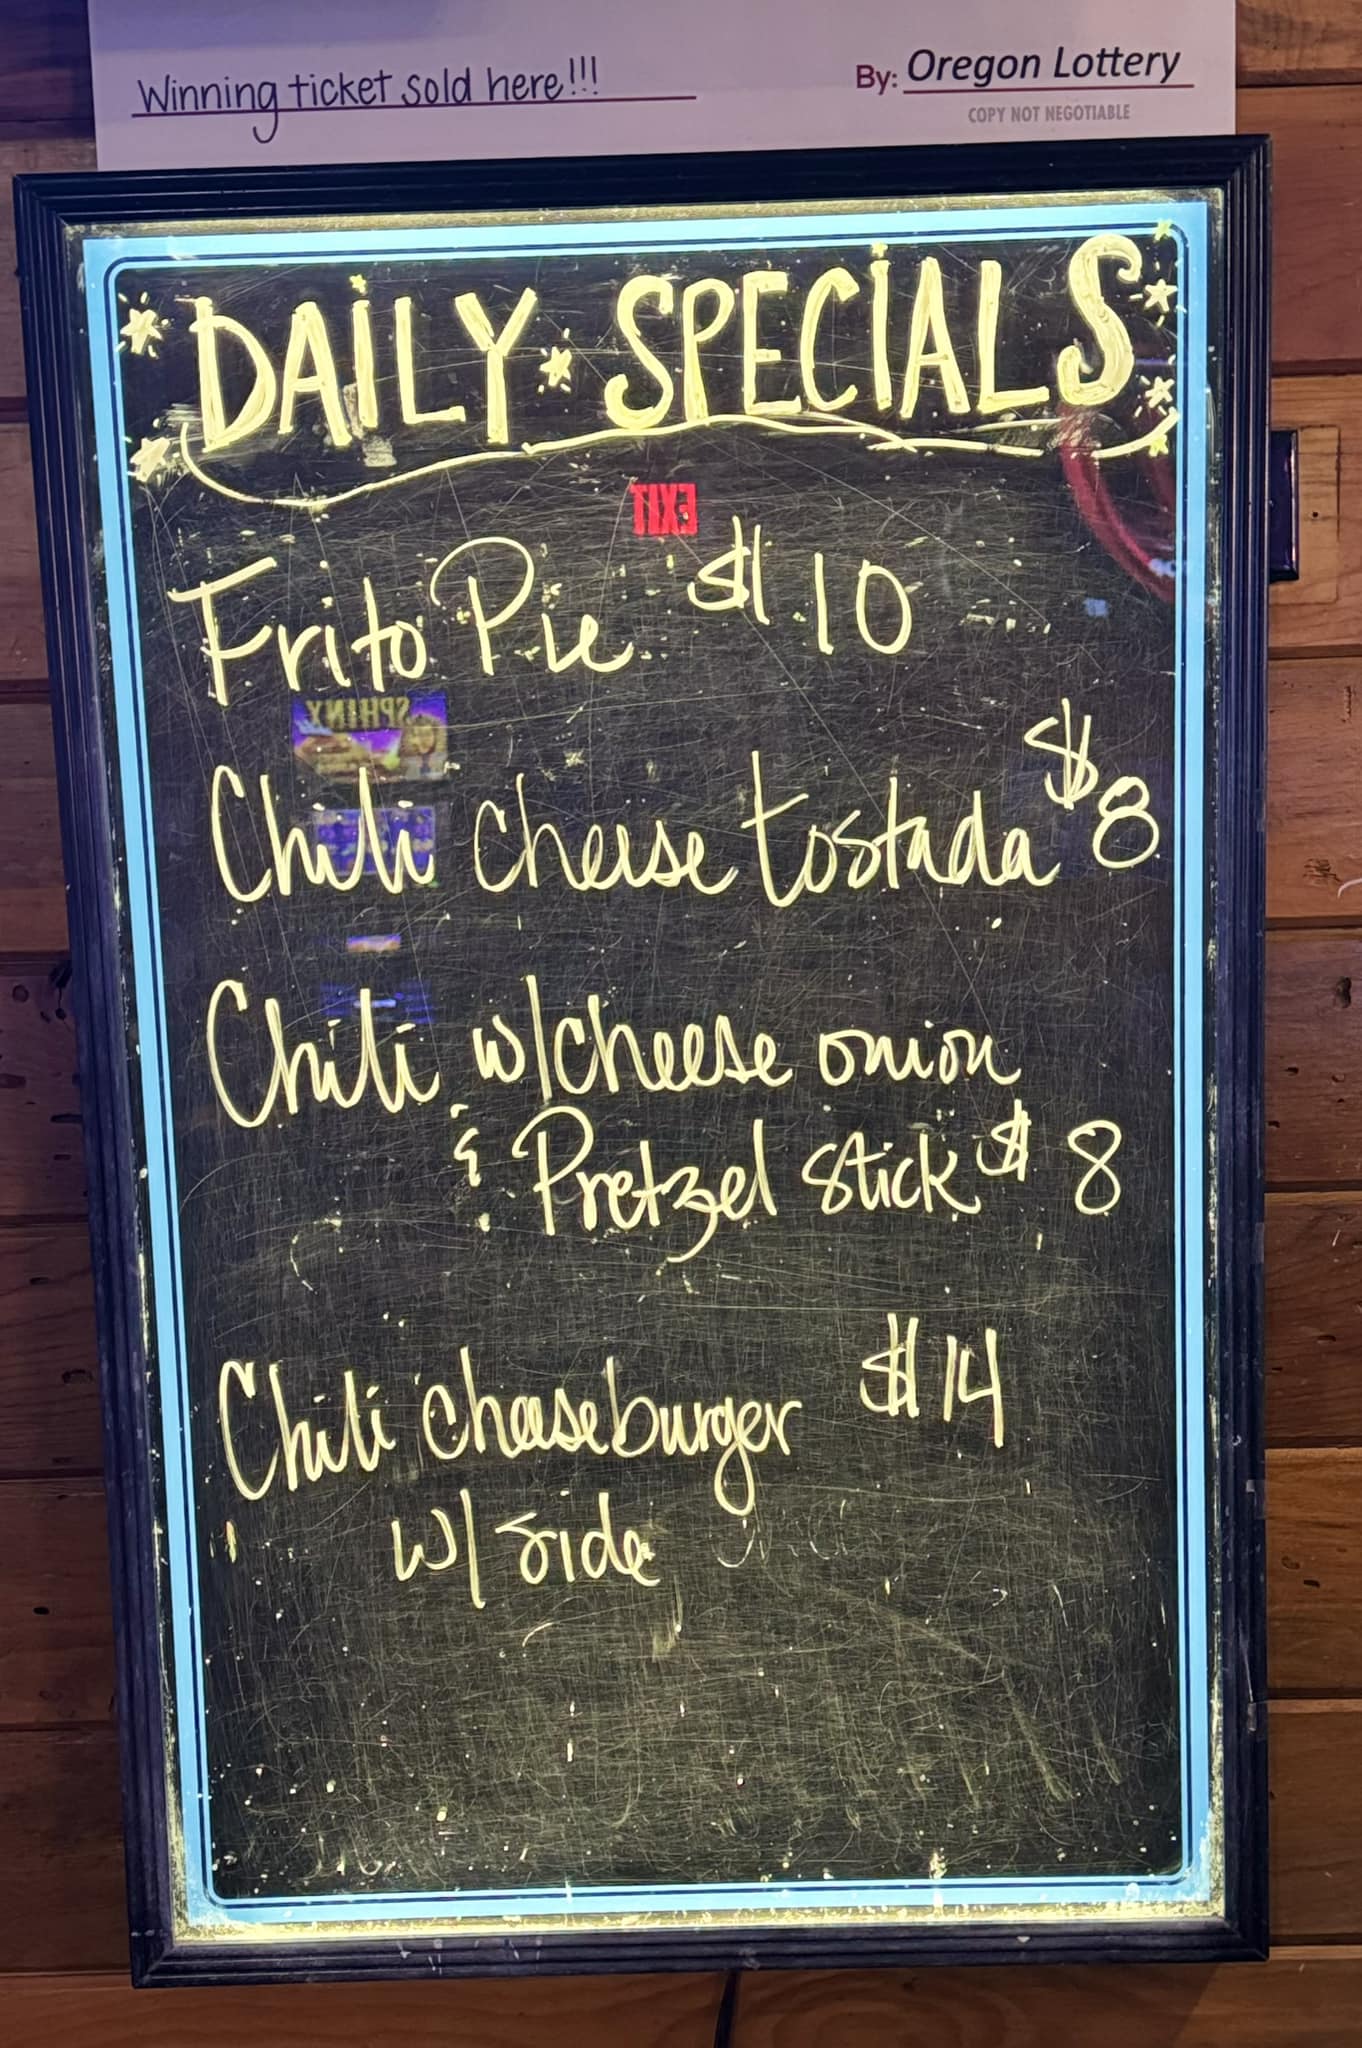 Winning ticket sold here!!!
By: Oregon Lottery
COPY NOT NEGOTIABLE
DAILY SPECIALS
EXIT
Frito Pie $10
SPHINX
Chili cheese tostada $8
Chili w/cheese onion
& Pretzel stick $8
Chili cheeseburger $14
w/ side